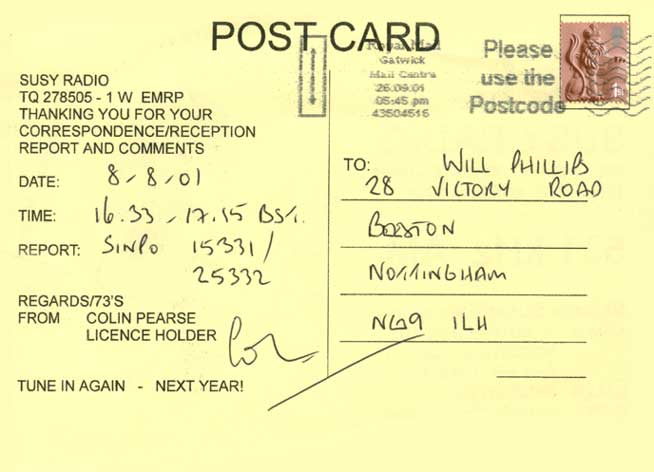 POST CARD
Royal Mail
Gatwick
Mail Centre
26.09.01
05:45 pm
43504516
Please
use the
Postcode
1ST
SUSY RADIO
TQ 278505 - 1 W EMRP
THANKING YOU FOR YOUR
CORRESPONDENCE/RECEPTION
REPORT AND COMMENTS
DATE: 8-8-01
TIME: 16.33 - 17.15 BST.
REPORT: SINPO 15331/
25332
REGARDS/73'S
FROM COLIN PEARSE
LICENCE HOLDER
TUNE IN AGAIN - NEXT YEAR!
TO: WILL PHILLIPS
28 VICTORY ROAD
BEESTON
NOTTINGHAM
NG9 1LH